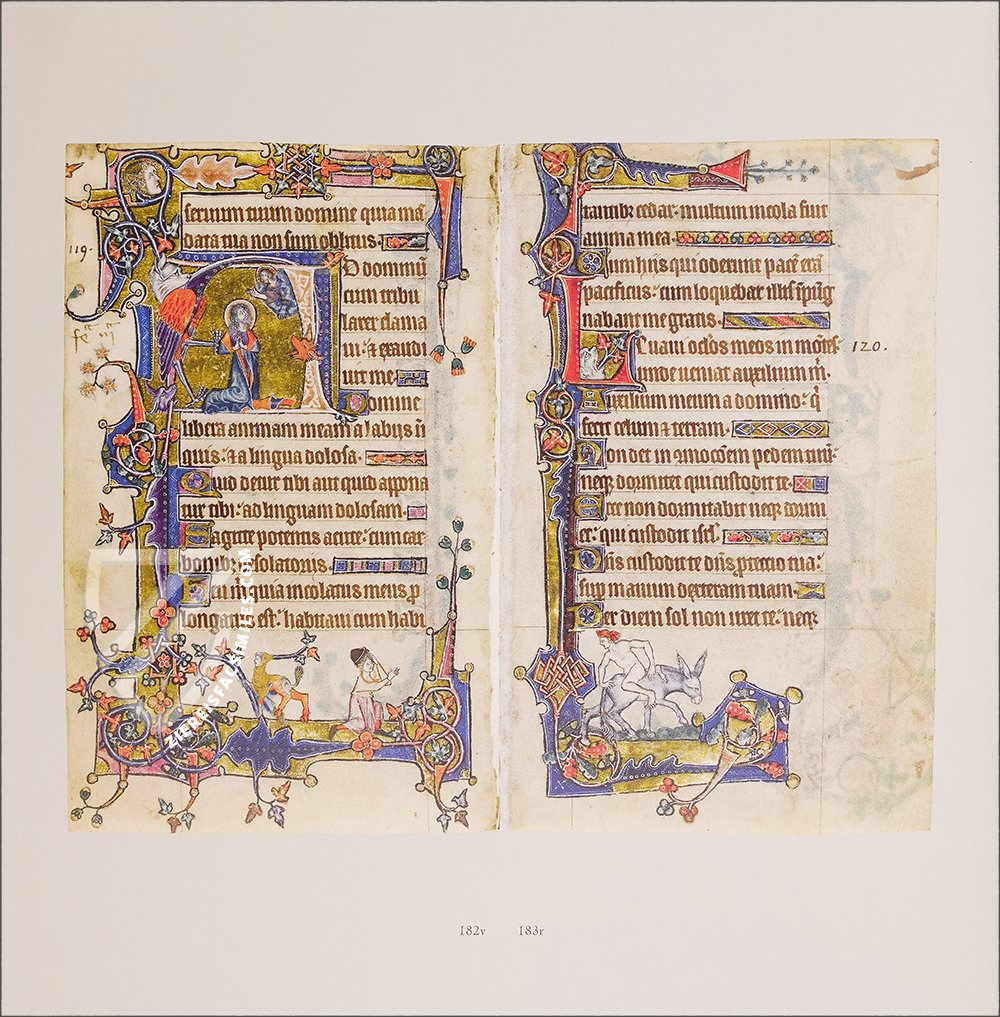 seruum tuum domine quia ma
data tua non sum oblitus.
119.
Ad dominũ
cum tribu
larer clama
ui: & exaudi
uit me.
Domine
libera animam meam a labijs ini
quis: & a lingua dolosa.
Quid detur tibi aut quid appona
tur tibi: ad linguam dolosam.
Sagitte potentis acute: cum car
bonibꝫ desolatoriis.
Heu m̃ quia incolatus meus p
longatus est: habitaui cum habi
tantibꝫ cedar. multum incola fuit
anima mea.
Cum hiis qui oderunt pacẽ erã
pacificus: cum loquebar illis ĩpũg
nabant me gratis.
Leuaui oclos meos in mõtes
120.
unde ueniat auxilium m̃.
Auxilium meum a domino: q̃
fecit celum & terram.
Non det in ɔmocõem pedem tuũ:
neqꝫ dormitet qui custodit te.
Ecce non dormitabit neqꝫ dormi
et: qui custodit isr̃l.
Dñs custodit te dñs ꝓtectio tua:
sup manum dexteram tuam.
Per diem sol non uret te: neqꝫ
182v 183r
ZIEREISFACSIMILES.COM